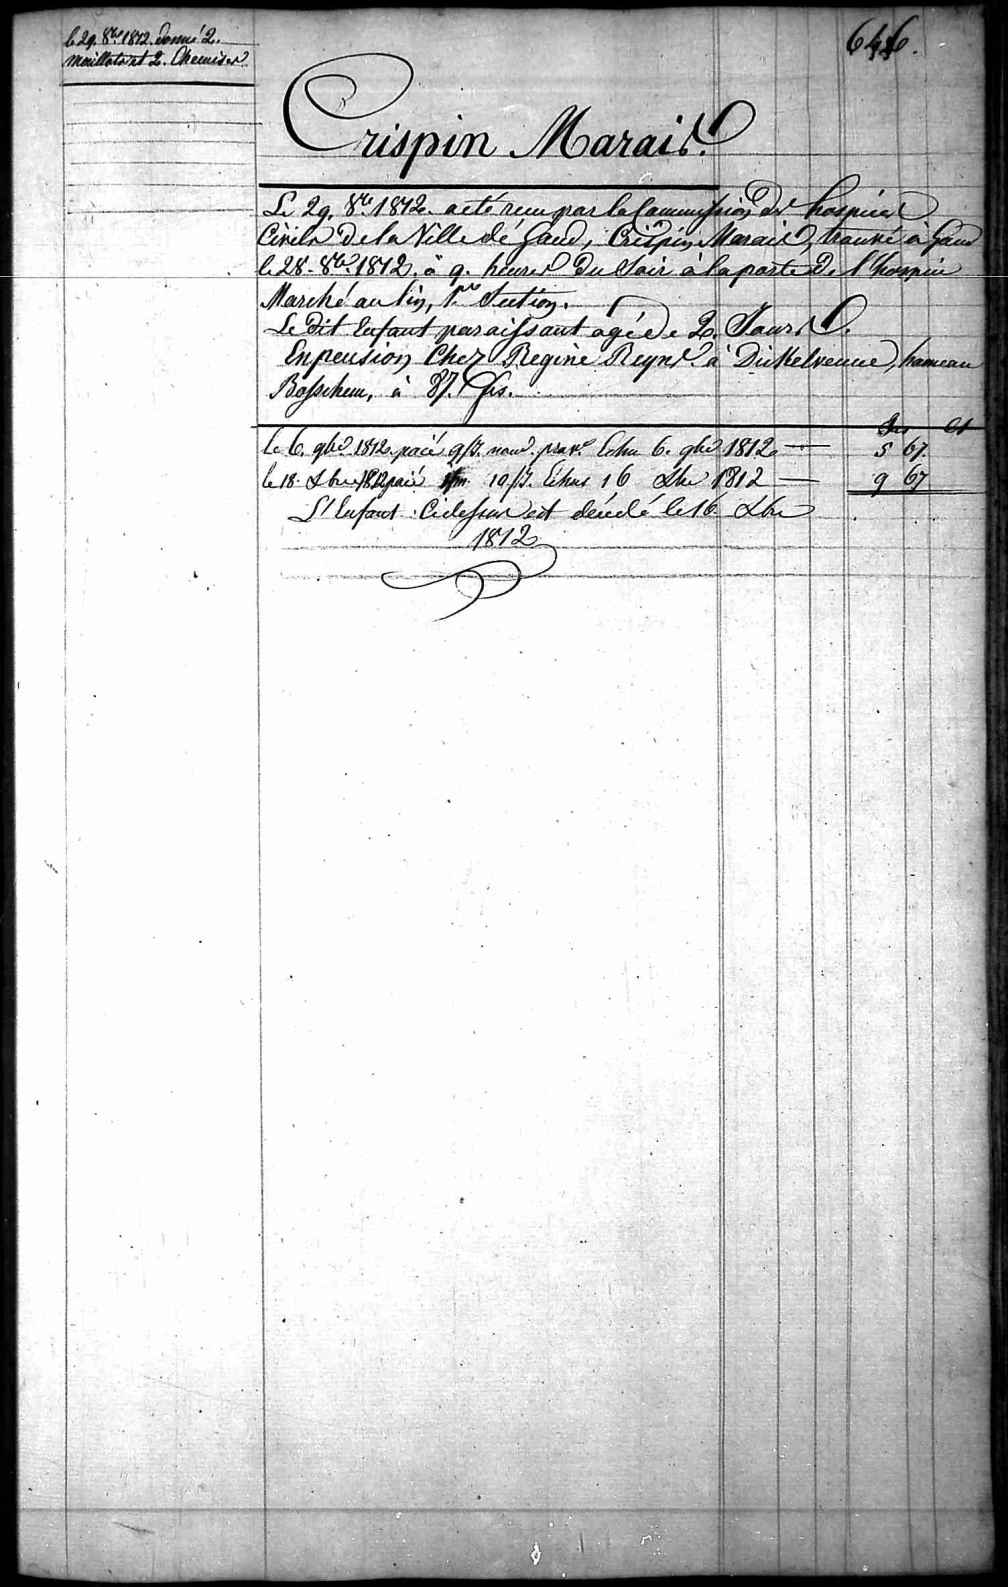 le 29. 8bre 1812. donné 2.
maillots et 2. Chemises
646.
Crispin Marais.
Le 29. 8bre 1812. a été reçu par la Commission des hospices
Civils de la Ville de Gand, Crispin Marais, trouvé à Gand
le 28. 8bre 1812. à 9. heures du Soir à la porte de l'hospice
Marché au lin, 1re Section.
Le dit Enfant paraissant agé de 2. Jours.
En pension Chez Regine Reyns à Dickelvenne, hameau
Bosschem, à 87. frs.
frs Ct
le 6. 9bre 1812. paié Echu 6. 9bre 1812 — 5 67.
le 18. Xbre 1812 paié Echus 16 Xbre 1812 — 9 67
L'Enfant Cidessus est décédé le 16 Xbre
1812